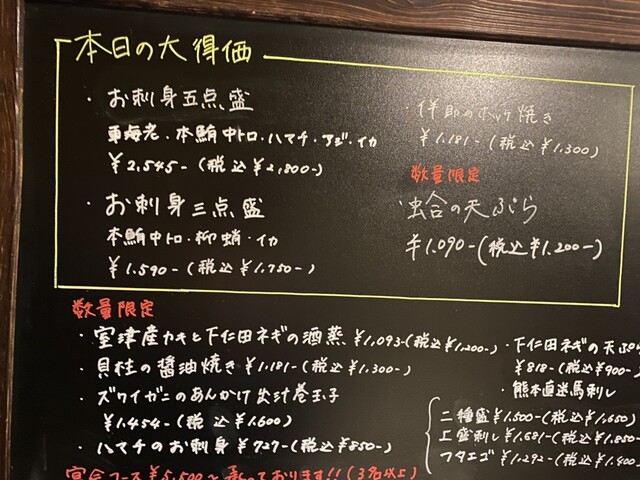 本日の大得価
・お刺身五点盛
車海老・本鮪中トロ・ハマチ・アジ・イカ
¥2,545-(税込¥2,800-)
・お刺身三点盛
本鮪中トロ・柳蛸・イカ
¥1,590-(税込¥1,750-)
のホッケ焼き
¥1,181-(税込¥1,300)
数量限定
・蛤の天ぷら
¥1,090-(税込¥1,200-)
数量限定
・室津産カキと下仁田ネギの酒蒸 ¥1,093-(税込¥1,200-)
・貝柱の醤油焼き ¥1,181-(税込¥1,300-)
・ズワイガニのあんかけ出汁巻玉子
¥1,454-(税込¥1,600)
・ハマチのお刺身 ¥727-(税込¥850-)
宴会コース¥5,500~承っております!!(3名以上)
・下仁田ネギの天ぷら
¥818-(税込¥900-)
・熊本直送馬刺し
二種盛 ¥1,500-(税込¥1,650)
上盛刺し ¥1,681-(税込¥1,850-
フタエゴ ¥1,292-(税込¥1,400